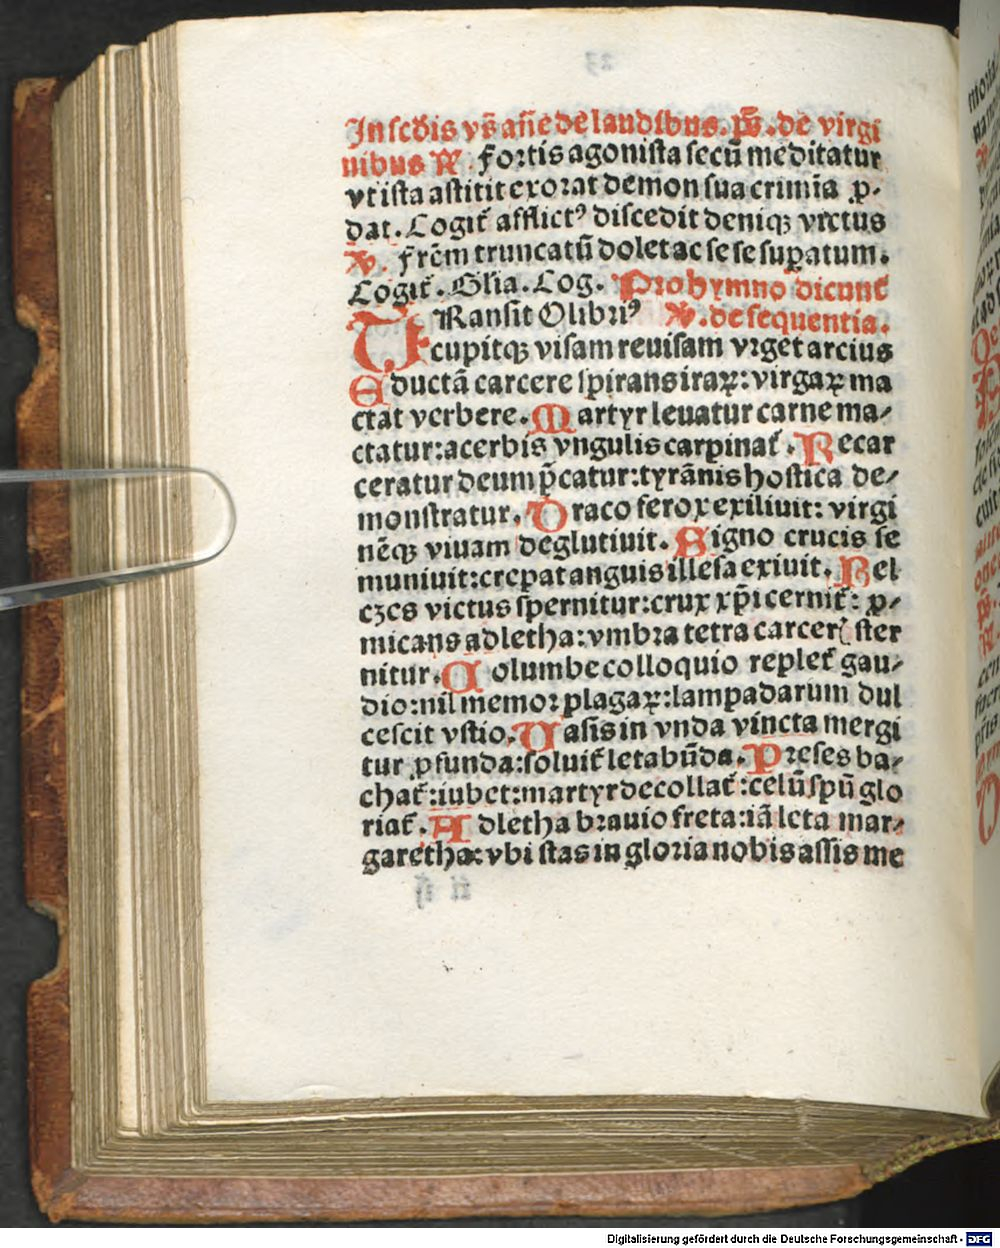 In scd̄is vs̄ añe de laudibus. ps̄. de virgi
nibus R̕. Fortis agonista secū meditatur
vt ista astitit exorat demon sua crimīa ꝓ-
dat. Cogit̄ afflictꝰ discedit deniqꝫ victus
V̕. Frēm truncatū dolet ac se se suꝑatum.
Cogit̄. Glīa. Cog. Pro hymno dicunt̄
TRansit Olibriꝰ V̕. de sequentia.
cupitqꝫ visam reuisam vrget arcius
Eductā carcere spirans iraꝝ: virgaꝝ ma
ctat verbere. Martyr leuatur carne ma⸗
ctatur: acerbis vngulis carpinat̄. Recar
ceratur deum p̄catur: tyrānis hostica de⸗
monstratur. Draco ferox exiliuit: virgi
nēqꝫ viuam deglutiuit. Signo crucis se
muniuit: crepat anguis illesa exiuit. Bel
czes victus spernitur: crux xp̄i cernit̄: ꝓ⸗
micans ad letha: vmbra tetra carcer̄ ster
nitur. Columbe colloquio replet̄ gau⸗
dio: nil memor plagaꝝ: lampadarum dul
cescit vstio. Vasis in vnda vincta mergi
tur ꝓfunda: soluit̄ letabūda. Preses ba⸗
chat̄: iubet: martyr decollat̄: celū spū glo
riat̄. Ad letha brauio freta: iā leta mar⸗
garetha: vbi stas in gloria nobis assis me
Digitalisierung gefördert durch die Deutsche Forschungsgemeinschaft - DFG